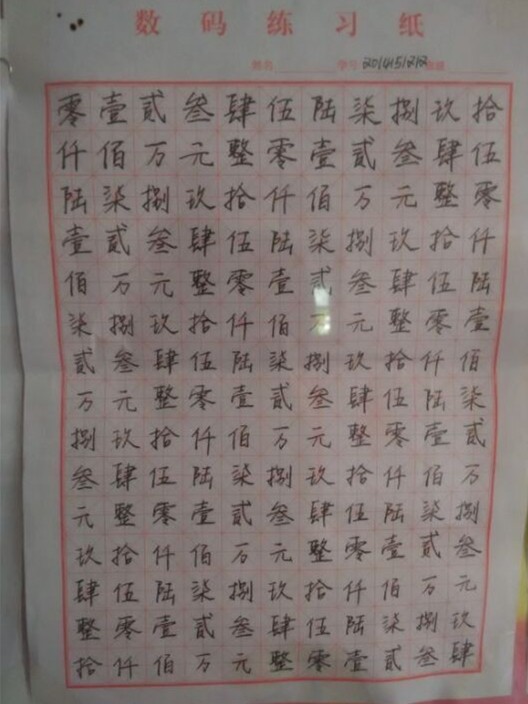 数码练习纸
姓名 学号 2014151212 班级
零壹贰叁肆伍陆柒捌玖拾
仟佰万元整零壹贰叁肆伍
陆柒捌玖拾仟佰万元整零
壹贰叁肆伍陆柒捌玖拾仟
佰万元整零壹贰叁肆伍陆
柒捌玖拾仟佰万元整零壹
贰叁肆伍陆柒捌玖拾仟佰
万元整零壹贰叁肆伍陆柒
捌玖拾仟佰万元整零壹贰
叁肆伍陆柒捌玖拾仟佰万
元整零壹贰叁肆伍陆柒捌
玖拾仟佰万元整零壹贰叁
肆伍陆柒捌玖拾仟佰万元
整零壹贰叁肆伍陆柒捌玖
拾仟佰万元整零壹贰叁肆